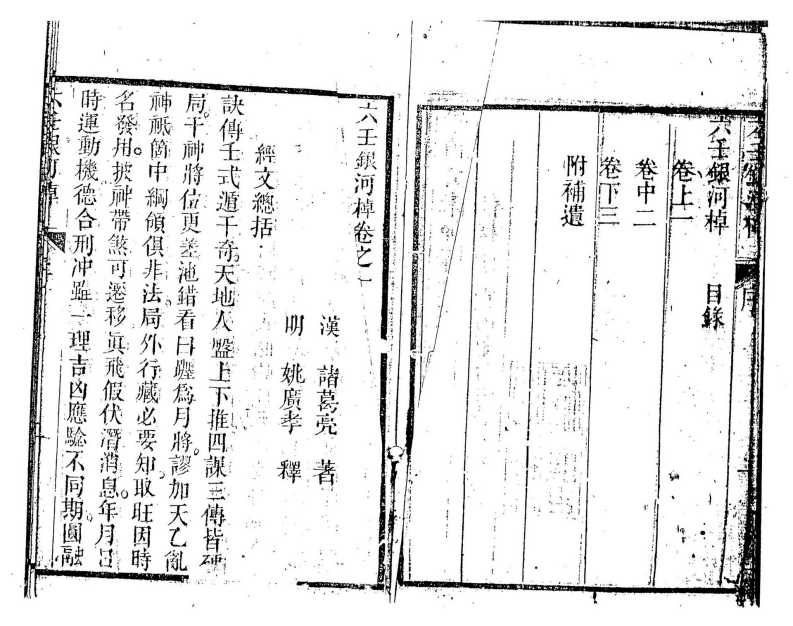 六壬銀河棹　目錄
卷上一
卷中二
卷下三
附補遺
六壬銀河棹卷之一
漢　諸葛亮　著
明　姚廣孝　釋
經文總括
訣傳壬式遁干奇。天地人盤上下推。四課三傳皆硬
局。干神將位更差池。錯看日躔為月將。謬加天乙亂
神祇。箇中綱領俱非法。局外行藏必要知。取旺因時
名發用。披神帶煞可遷移。眞飛假伏潛消息。年月日
時運動機。德合刑冲雖一理。吉凶應驗不同期。圓融
六壬銀河棹